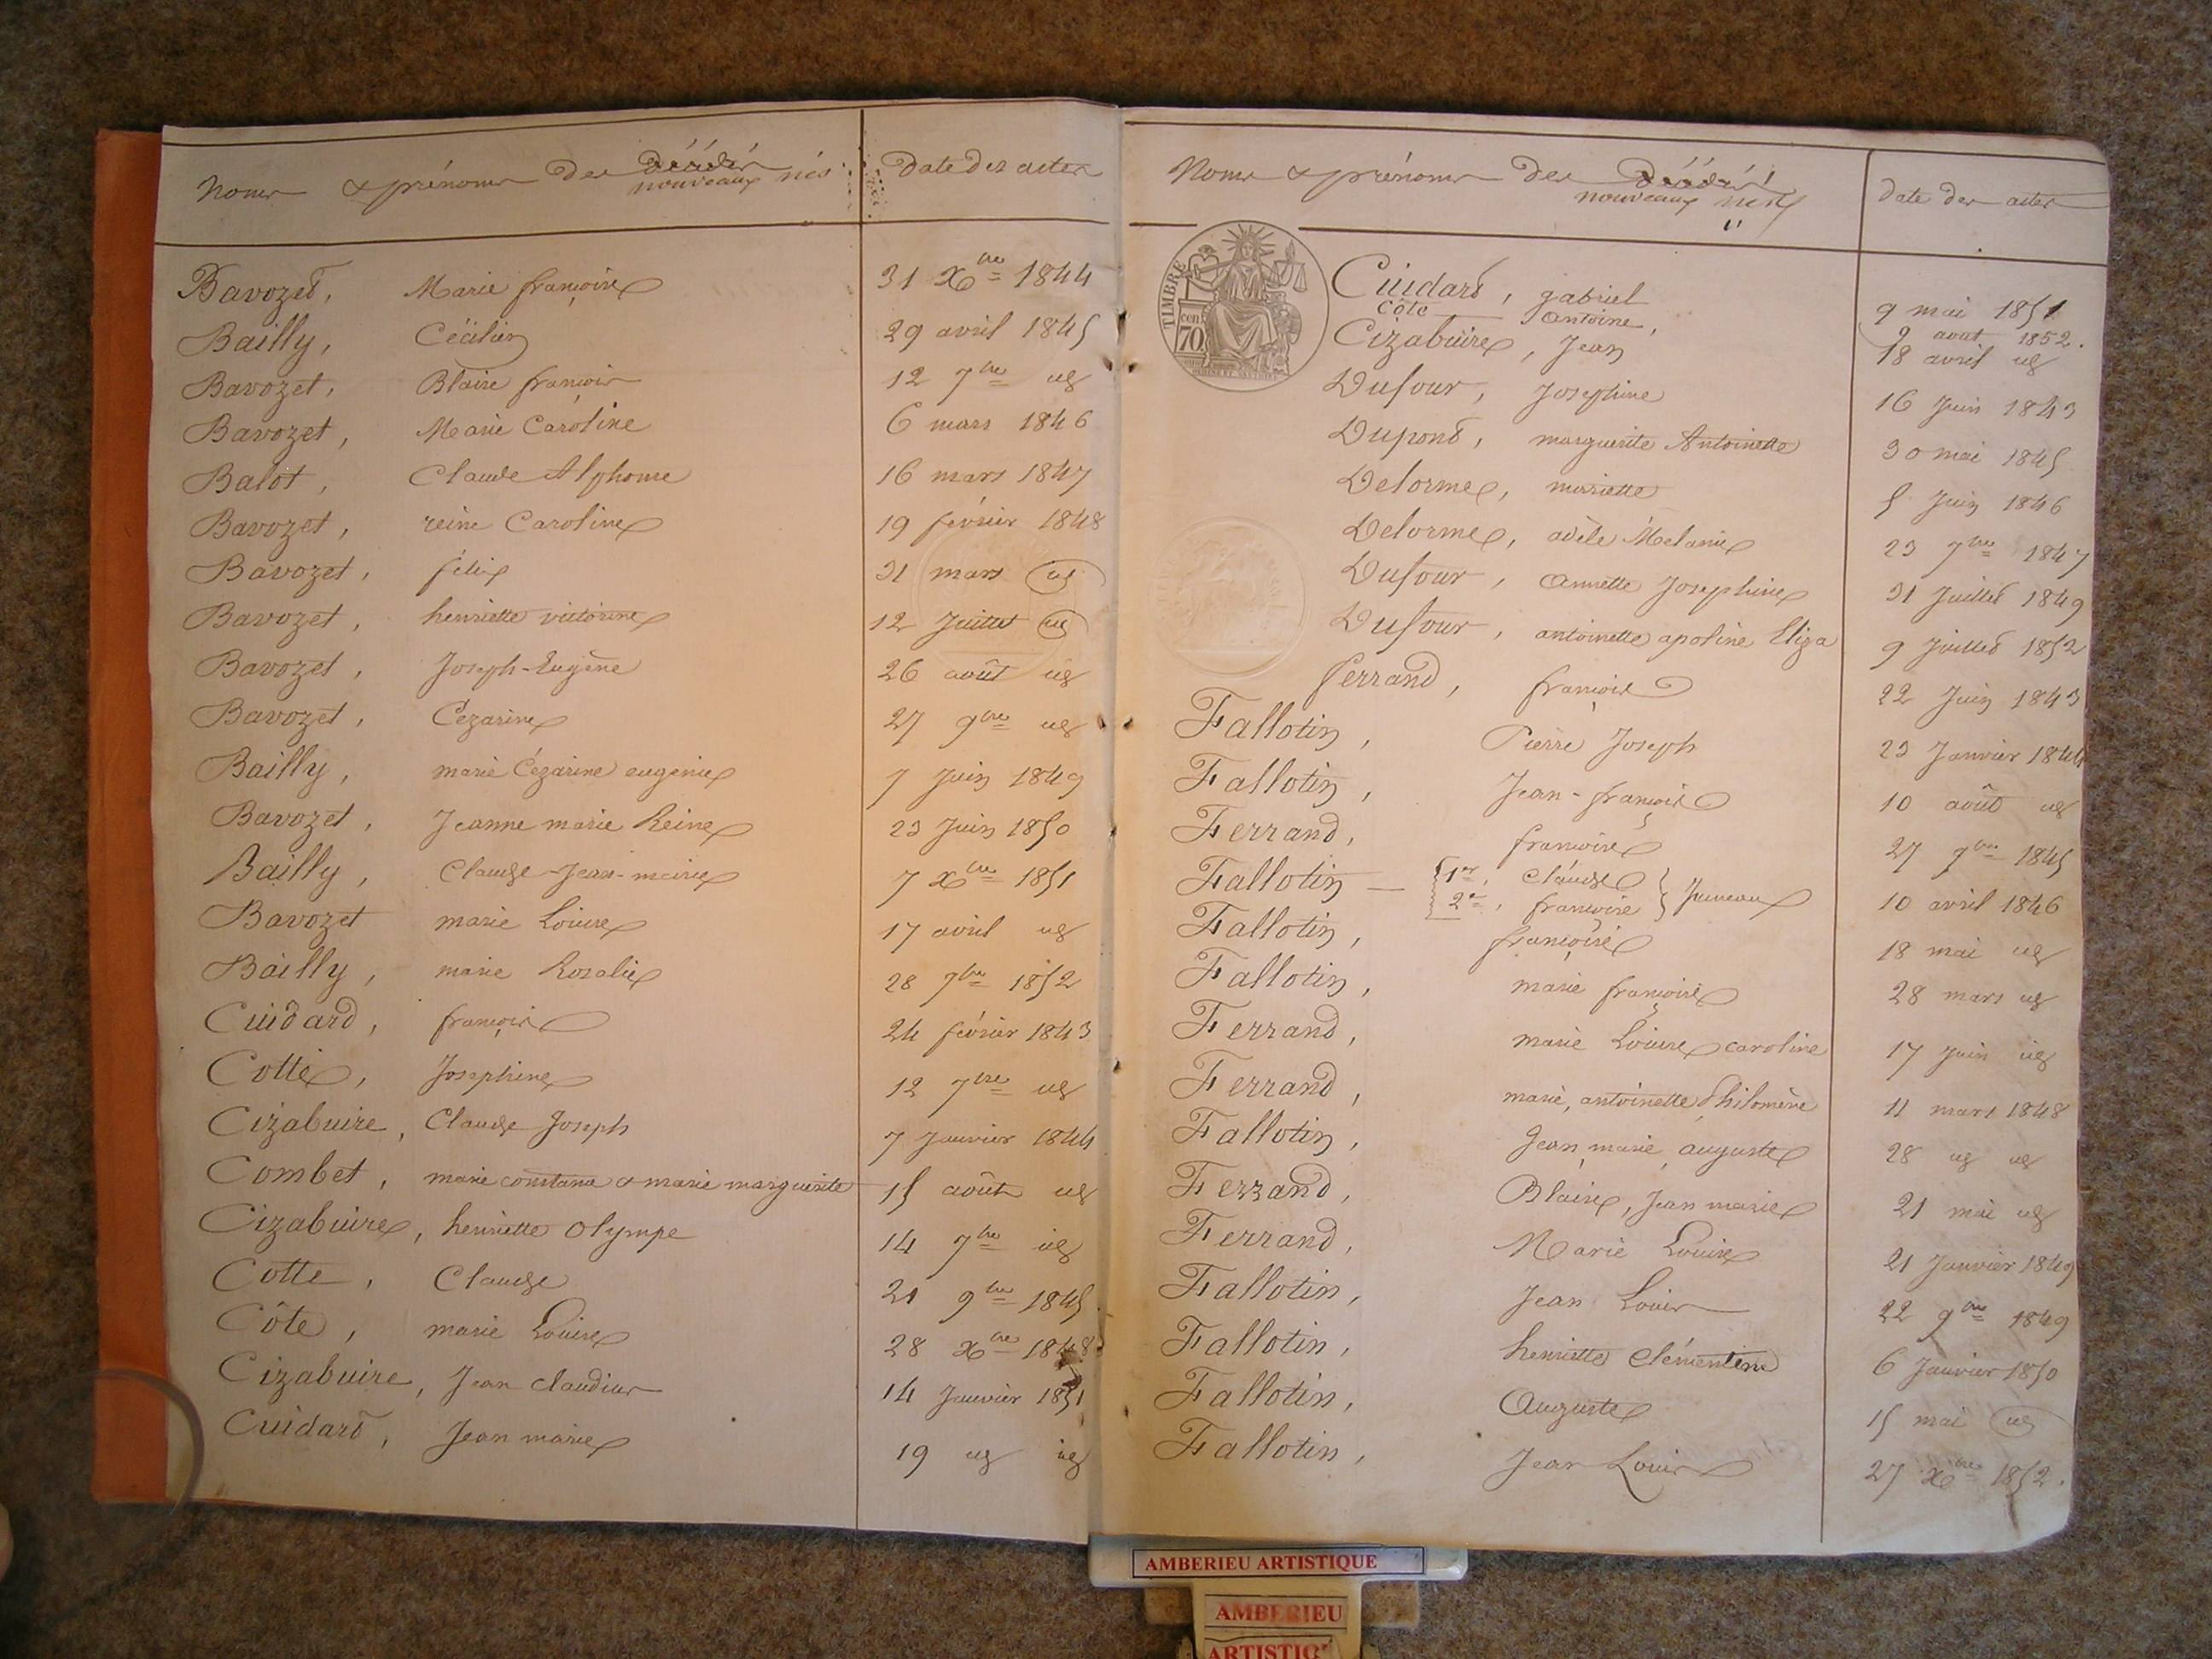 Noms & prénoms des décédés nouveaux nés
Date des actes
Bavozet, Marie françoise 31 Xbre 1844
Bailly, Cécilien 29 avril 1845
Bavozet, Blaise françois 12 7bre id
Bavozet, Marie Caroline 6 mars 1846
Balot, Claude Alphonse 16 mars 1847
Bavozet, reine Caroline 19 février 1848
Bavozet, félix 31 mars id
Bavozet, henriette victorine 12 Juillet id
Bavozet, Joseph-Eugène 26 août id
Bavozet, Cézarine 27 9bre id
Bailly, marie Cézarine eugenie 7 Juin 1849
Bavozet, Jeanne marie Reine 23 Juin 1850
Bailly, Claude-Jean-marie 7 Xbre 1851
Bavozet marie Louise 17 avril id
Bailly, marie Rozalie 28 7bre 1852
Cuidard, françois 24 février 1843
Cotte, Josephine 12 7bre id
Cizabuire, Claude Joseph 7 Janvier 1844
Combet, marie constance & marie marguerite 15 août id
Cizabuire, henriette Olympe 14 7bre id
Cotte, Claude 21 9bre 1845
Côte, marie Louise 28 Xbre 1848
Cizabuire, Jean claudius 14 Janvier 1851
Cuidard, Jean marie 19 id id
Noms & prénoms des décédés nouveaux nés
date des actes
TIMBRE
cen.
70
Cuidard, gabriel 9 mai 1851
Côte Antoine, 9 aout 1852.
Cizabuire, Jean 18 avril id
Dufour, Josephine 16 Juin 1843
Dupont, marguerite Antoinette 30 mai 1845
Delorme, mariette 5 Juin 1846
Delorme, adèle Mélanie 23 7bre 1847
Dufour, Annette Josephine 31 Juillet 1849
Dufour, antoinette apoline Eliza 9 Juillet 1852
ferrand, françois 22 Juin 1843
Fallotin, Pierre Joseph 23 Janvier 1844
Fallotin, Jean-françois 10 août id
Ferrand, françoise 27 7bre 1845
Fallotin — 1er, Claude 2e, françoise Jumeaux 10 avril 1846
Fallotin, françoise 18 mai id
Fallotin, marie françoise 28 mars id
Ferrand, marie Louise caroline 17 Juin id
Ferrand, marie, antoinette Philomène 11 mars 1848
Fallotin, Jean marie auguste 28 id id
Ferrand, Blaise, Jean marie 21 mai id
Ferrand, Marie Louise 21 Janvier 1849
Fallotin, Jean Louis 22 9bre 1849
Fallotin, henriette Clémentine 6 Janvier 1850
Fallotin, Auguste 15 mai id
Fallotin, Jean Louis 27 Xbre 1852.
AMBERIEU ARTISTIQUE
AMBERIEU
ARTISTIQ